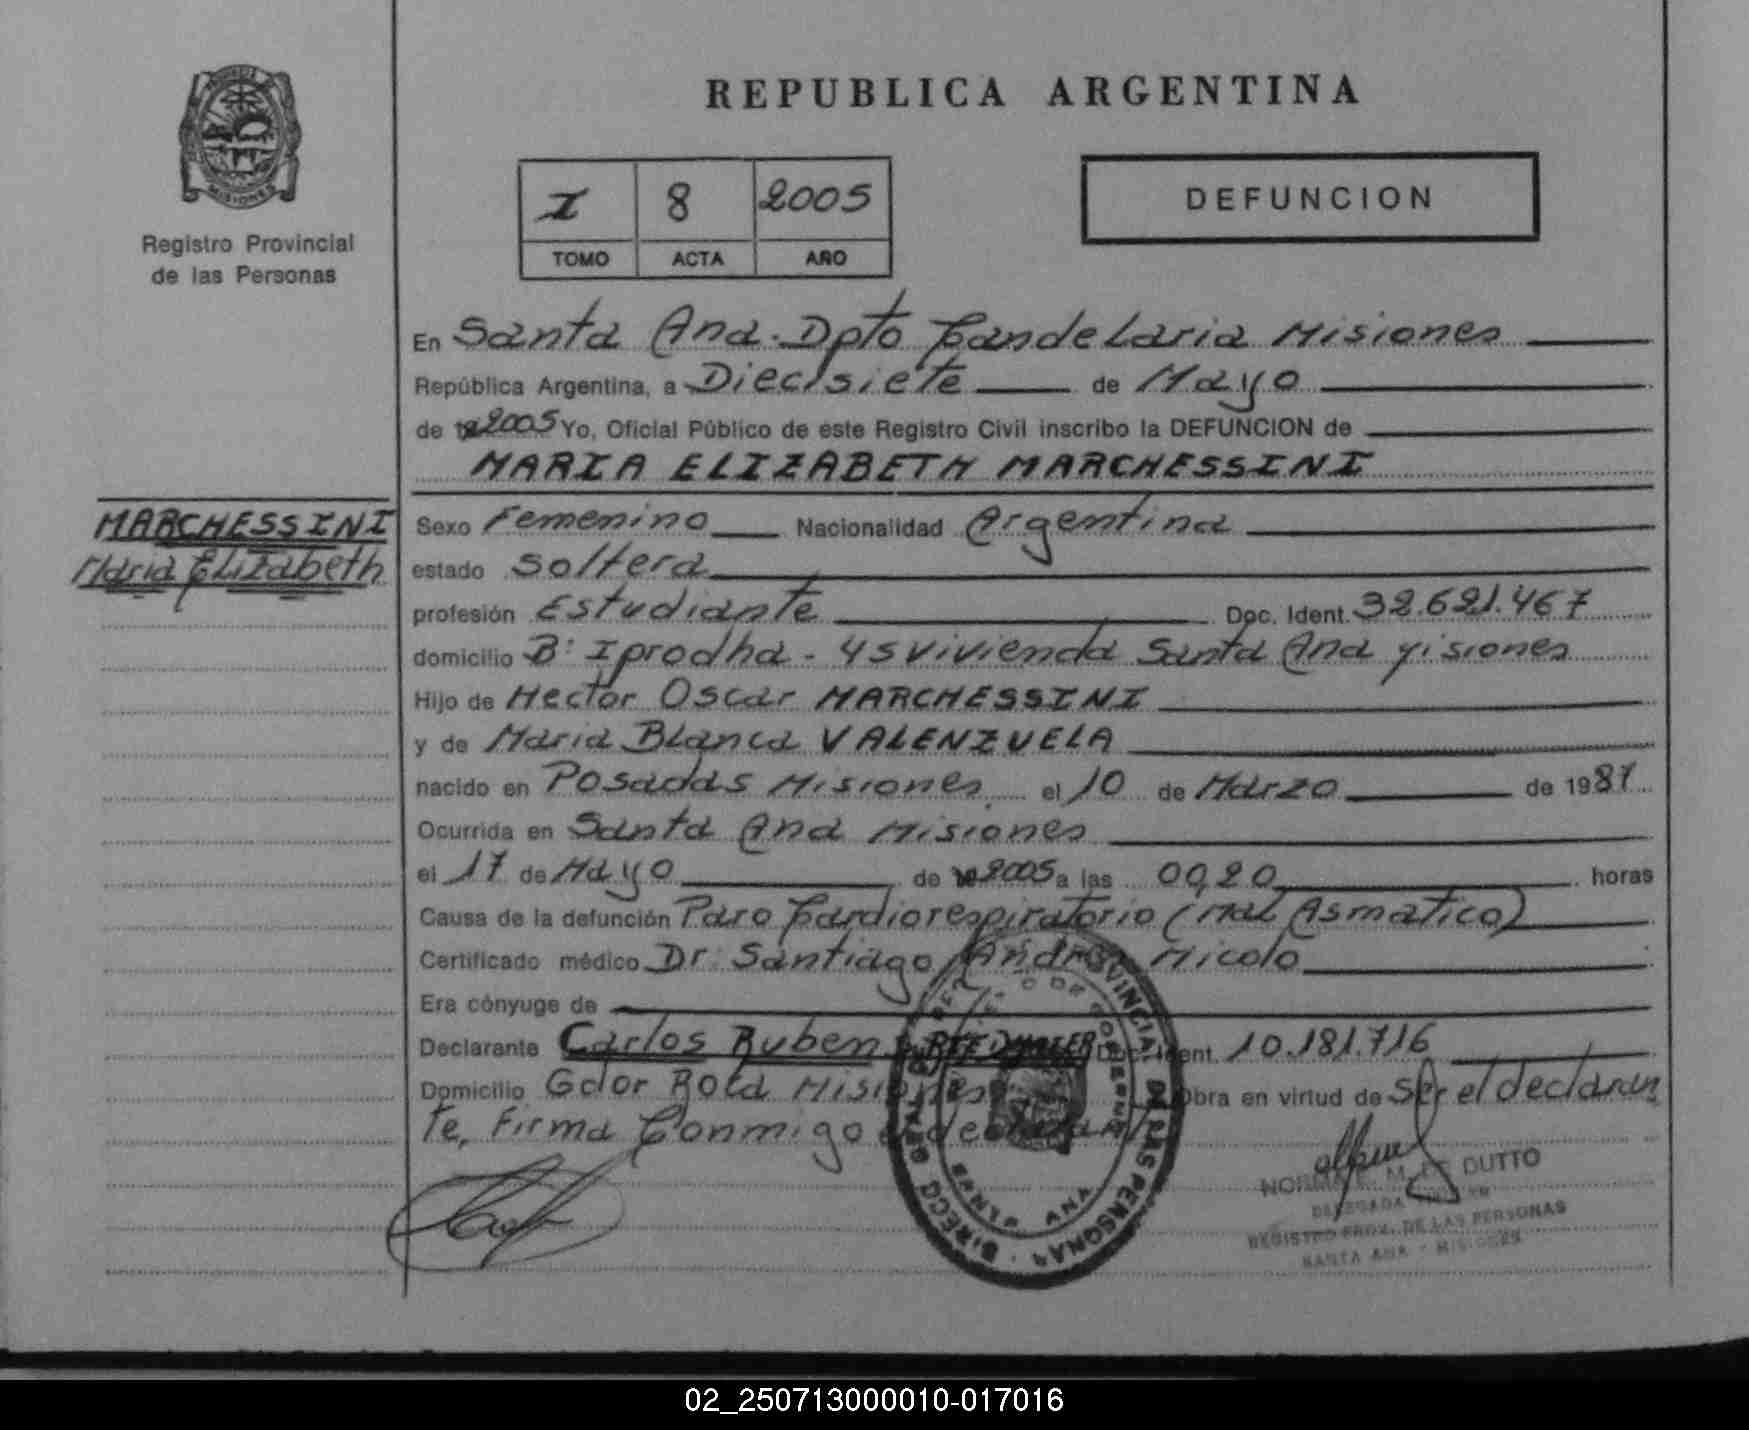 REPUBLICA ARGENTINA
PROVINCIA DE
MISIONES
Registro Provincial
de las Personas
I 8 2005
TOMO ACTA AÑO
DEFUNCION
En Santa Ana. Dpto Candelaria Misiones
República Argentina, a Diecisiete de Mayo
de 2005 Yo, Oficial Público de este Registro Civil inscribo la DEFUNCION de
MARIA ELIZABETH MARCHESSINI
MARCHESSINI
Maria Elizabeth
Sexo Femenino Nacionalidad Argentina
estado Soltera
profesión Estudiante Doc. Ident. 32.621.467
domicilio B: Iprodha - 45 vivienda Santa Ana Misiones
Hijo de Hector Oscar MARCHESSINI
y de Maria Blanca VALENZUELA
nacido en Posadas Misiones el 10 de Marzo de 1987
Ocurrida en Santa Ana Misiones
el 17 de Mayo de 2005 a las 00,20 horas
Causa de la defunción Paro Cardiorespiratorio (Mal Asmatico)
Certificado médico Dr. Santiago Andres Nicolo
Era cónyuge de
Declarante Carlos Ruben Doc. Ident. 10.181.716
Domicilio Gdor Roca Misiones Obra en virtud de Ser el declaran
te, Firma Conmigo el declarante
PROVINCIAL DE LAS PERSONAS
SANTA ANA
NORMA E. M. DE DUTTO
DELEGADA
REGISTRO PROV. DE LAS PERSONAS
SANTA ANA - MISIONES
02_250713000010-017016